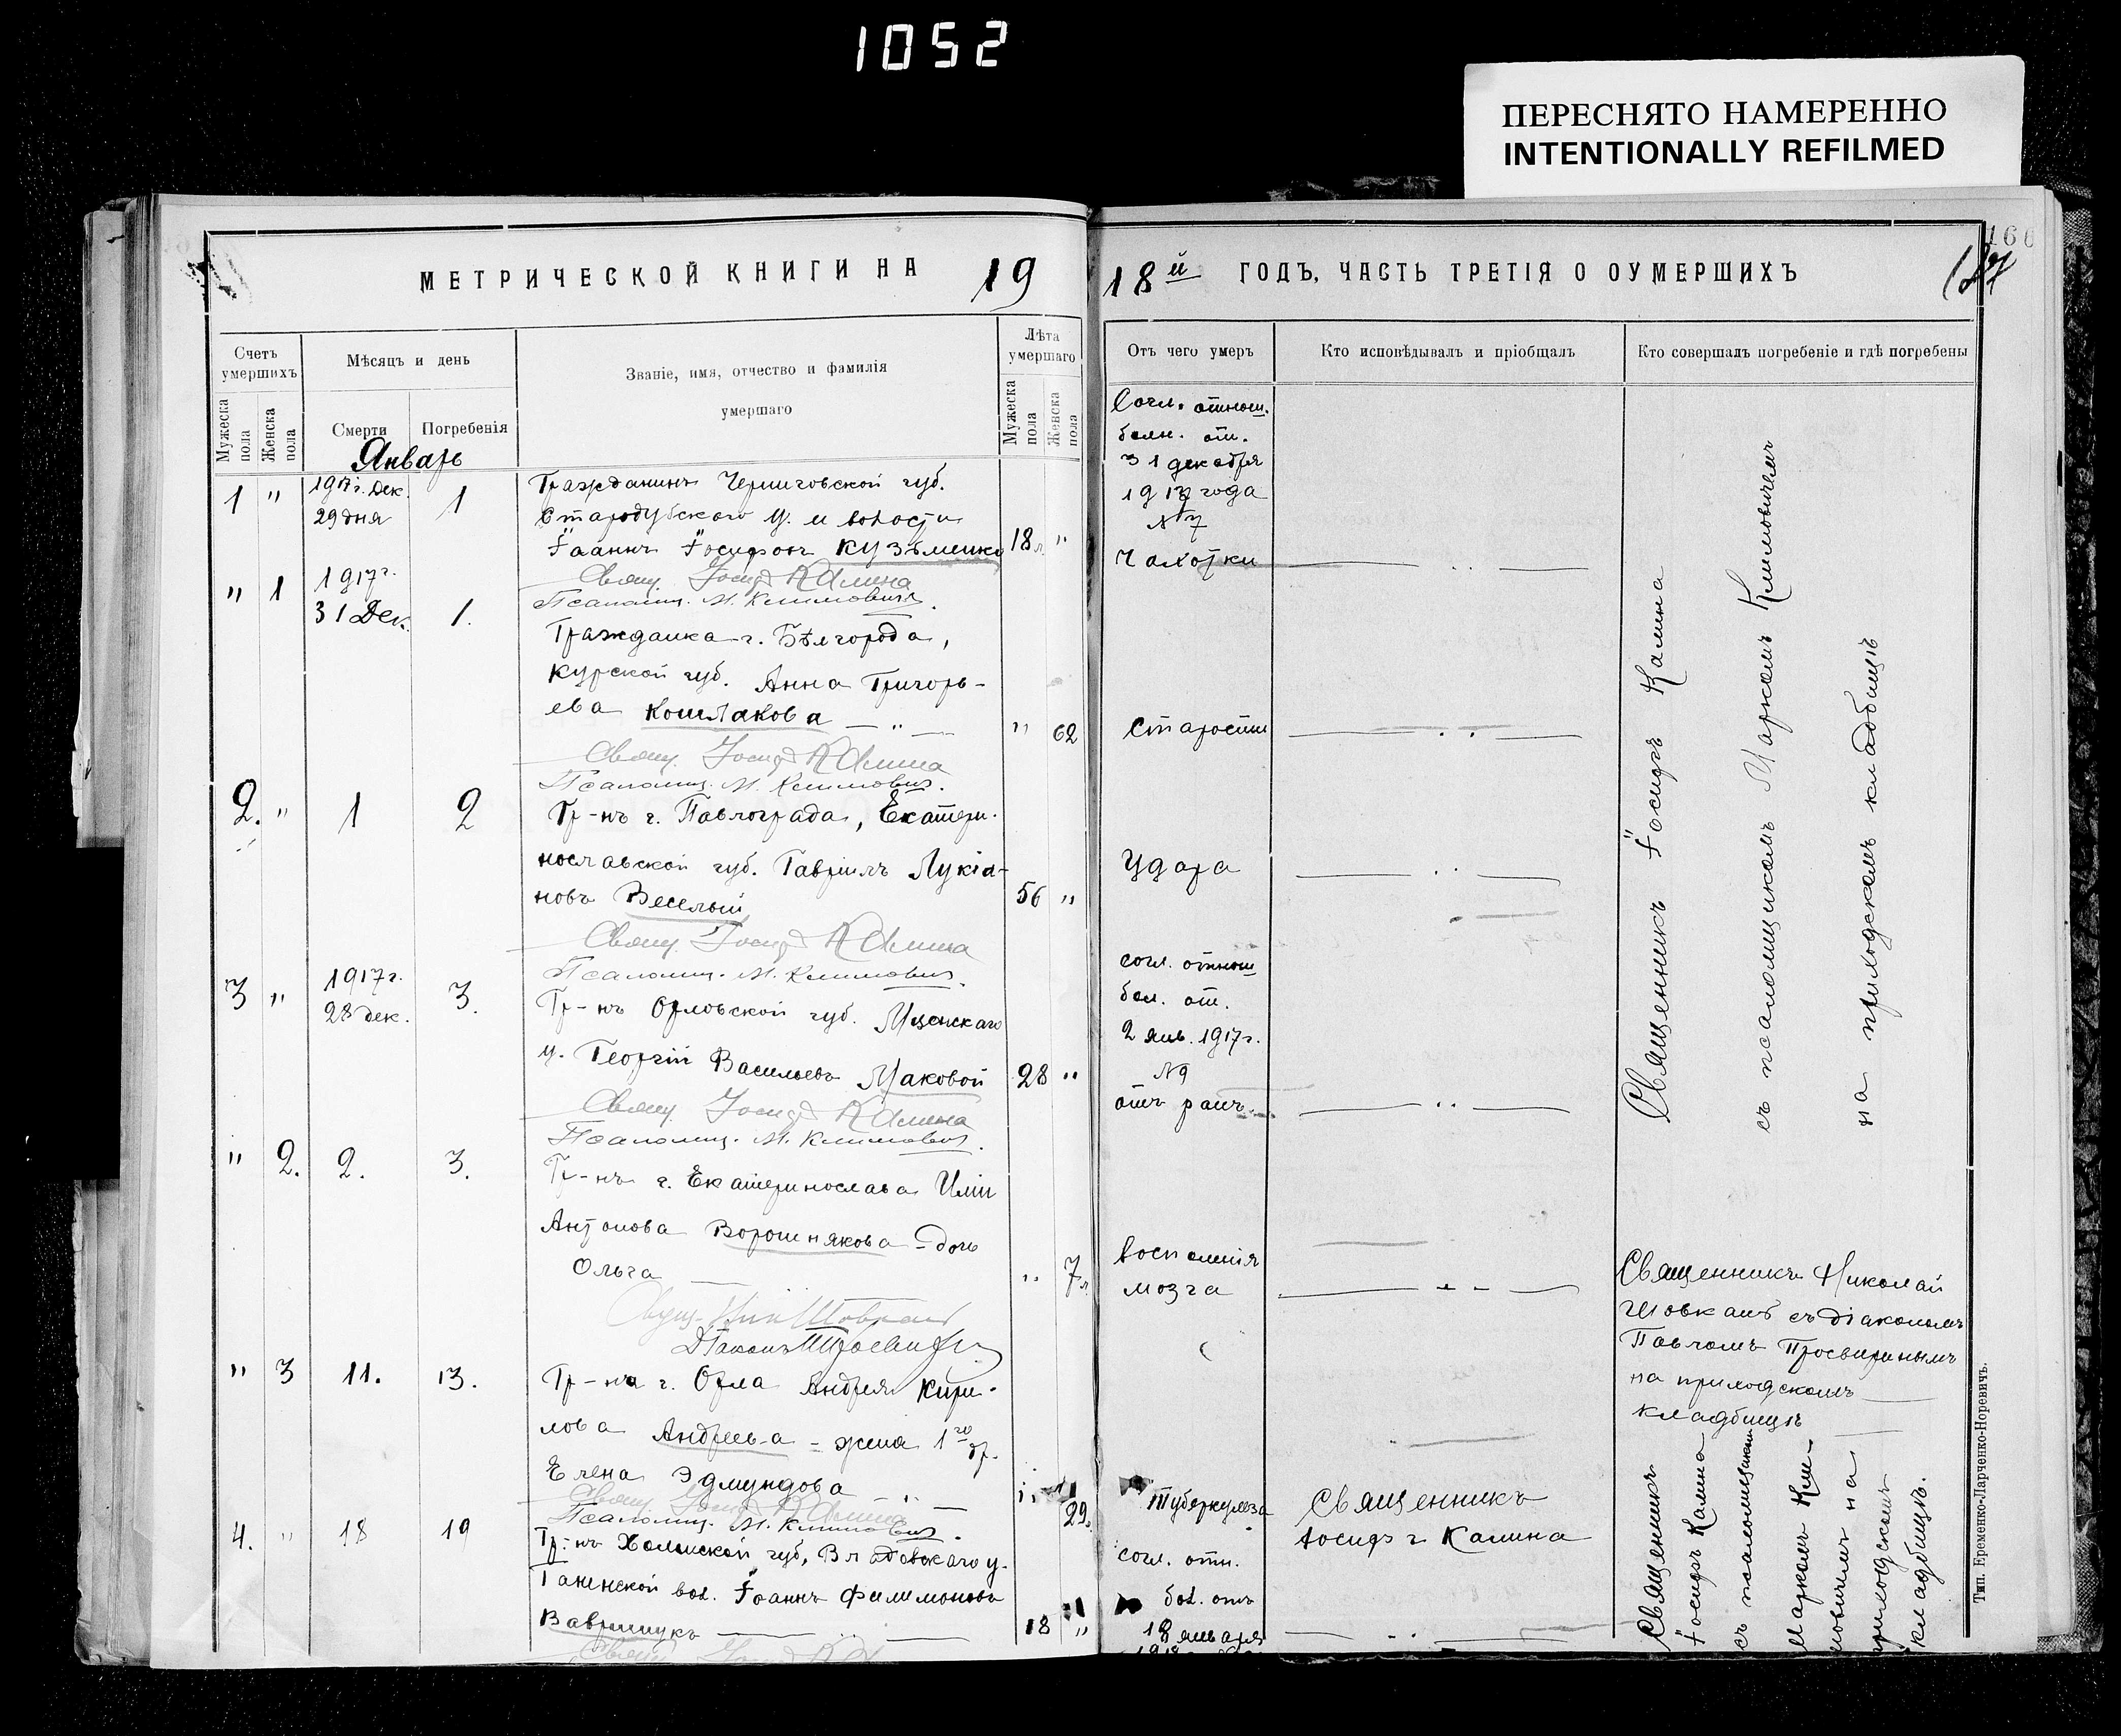 1052
ПЕРЕСНЯТО НАМЕРЕННО
INTENTIONALLY REFILMED
166
МЕТРИЧЕСКОЙ КНИГИ НА 19
18й ГОДЪ, ЧАСТЬ ТРЕТІЯ О ОУМЕРШИХЪ
Счетъ умершихъ
Мужеска пола
Женска пола
Мѣсяцъ и день
Смерти
Погребенія
Январь
Званіе, имя, отчество и фамилія
умершаго
Лѣта умершаго
Мужеска пола
Женска пола
Отъ чего умеръ
Кто исповѣдывалъ и пріобщалъ
Кто совершалъ погребеніе и гдѣ погребены
1 " 1917г. Дек. 29 дня 1
Гражданинъ Черниговской губ.
Стародубскаго у. и волости
Іоаннъ Іосифовъ Кузьменко
18 л. "
Согл. отнош.
болн. от.
31 декабря
1917 года
№ 7
Чахотки
Свящ. Іосифъ Калина
Псаломщ. М. Климовичъ.
" 1 1917г. 31 Дек. 1.
Гражданка г. Бѣлгорода,
Курской губ. Анна Григорь-
ева Кошлакова
" 62
Старости
Свящ. Іосифъ Калина
Псаломщ. М. Климовичъ.
2. " 1 2
Гр-нъ г. Павлограда, Екатери-
нославской губ. Гавріилъ Лукіа-
новъ Веселый
56 "
Удара
Свящ. Іосифъ Калина
Псаломщ. М. Климовичъ.
3 " 1917г. 28 дек. 3.
Гр-нъ Орловской губ. Мценскаго
у. Георгій Васильевъ Маковой
28 "
согл. отнош
бол. от.
2 янв. 1917г.
№ 9
отъ ранъ
Свящ. Іосифъ Калина
Псаломщ. М. Климовичъ.
Священникъ Іосифъ Калина
съ псаломщикомъ Маркомъ Климовичемъ
на приходскомъ кладбищѣ
" 2. 2. 3.
Гр-нъ г. Екатеринослава Иліи
Антонова Ворошнякова - дочь
Ольга
" 7 л.
воспаленія
мозга
Священникъ Николай
Шовкань съ діакономъ
Павломъ Просвиринымъ
на приходскомъ
кладбищѣ
" 3 11. 13.
Гр-на г. Орла Андрея Кири-
лова Андреева - жена 1го бр.
Елена Эдмундова
29
Туберкулеза
Священникъ
Іосифъ Калина
Псаломщ. М. Климовичъ.
4. " 18 19
Гр-нъ Холмской губ., Влодавскаго у.
вол. Іоаннъ Филимоновъ
Ваврищукъ
18 "
согл. отн.
бол. отъ
18 января
Священникъ
Іосифъ Калина
съ псаломщикомъ
Маркомъ Кли-
мовичемъ на
приходскомъ
кладбищѣ.
Тип. Еременко-Ларченко-Норевичъ.